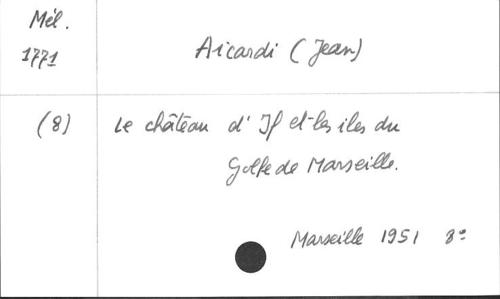 Mél.
1771
Aicardi (Jean)
(8)
Le château d'If et les iles du
Golfe de Marseille.
Marseille 1951 8°